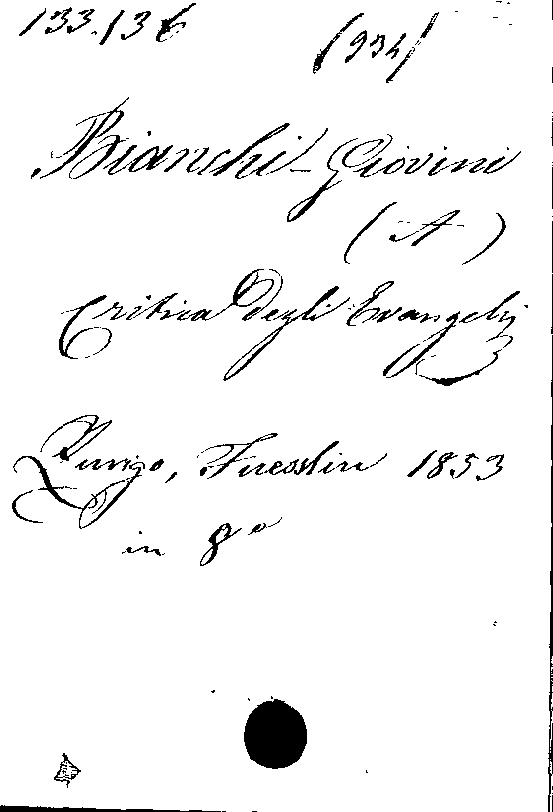 133.136
(934)
Bianchi-Giovini
(A)
Critica degli Evangelj
Zurigo, Fuesslin 1853
in 8°